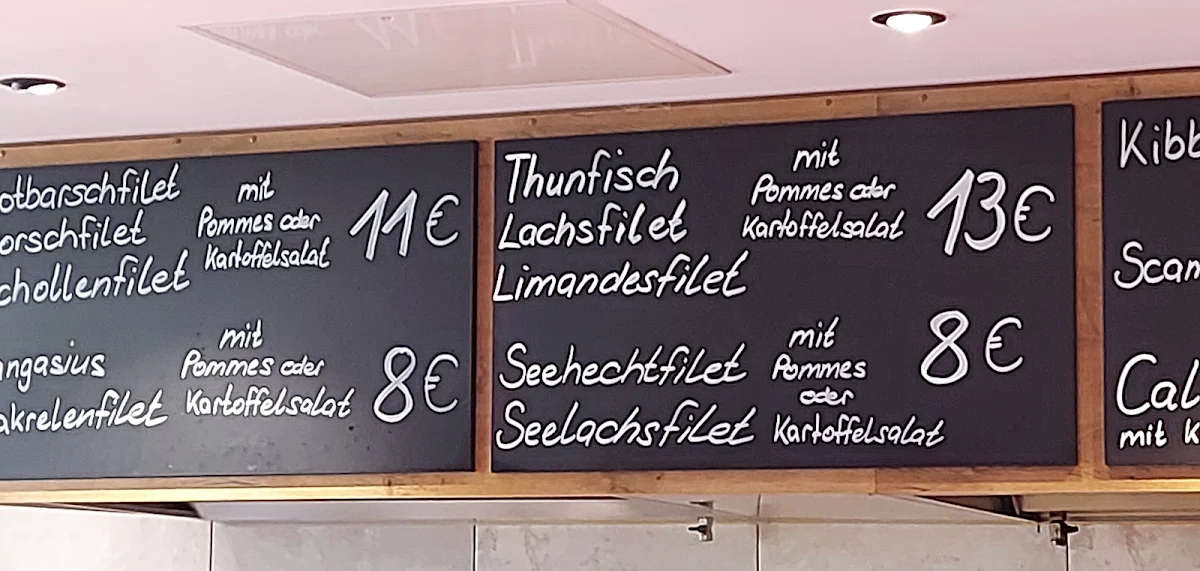 otbarschfilet
orschfilet
chollenfilet
mit
Pommes oder
Kartoffelsalat
11€
ngasius
akrelenfilet
mit
Pommes oder
Kartoffelsalat
8€
Thunfisch
Lachsfilet
Limandesfilet
mit
Pommes oder
Kartoffelsalat
13€
Seehechtfilet
Seelachsfilet
mit
Pommes
oder
Kartoffelsalat
8€
Kibb
Scam
Cal
mit K